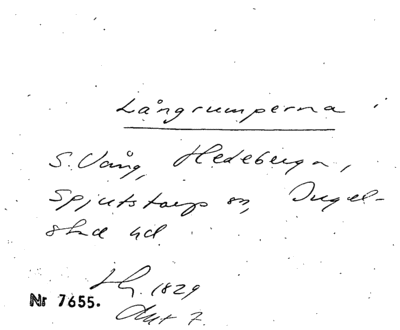 Långrumperna
S. Vång, Hedeberga,
Spjutstorps sn, Ingel-
stad hd
1829
Nr 7655.
7.